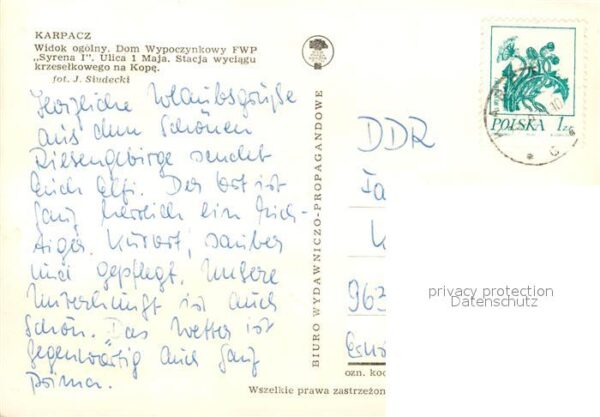 KARPACZ
Widok ogólny. Dom Wypoczynkowy FWP
„Syrena I". Ulica 1 Maja. Stacja wyciągu
krzesełkowego na Kopę.
fot. J. Siudecki
Herzliche Urlaubsgrüße
aus dem Schönen
Riesengebirge sendet
Euch Elfi. Der Ort ist
ganz herrlich ein rich-
tiger Kurort, sauber
und gepflegt. Unsere
Unterkunft ist auch
schön. Das Wetter ist
gegenwärtig auch ganz
prima.
BIURO WYDAWNICZO-PROPAGANDOWE
POLSKA 1zł
DDR
Fa
K
963
privacy protection
Datenschutz
ozn. kod
Wszelkie prawa zastrzeżon